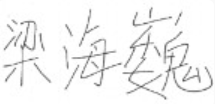 梁海巍